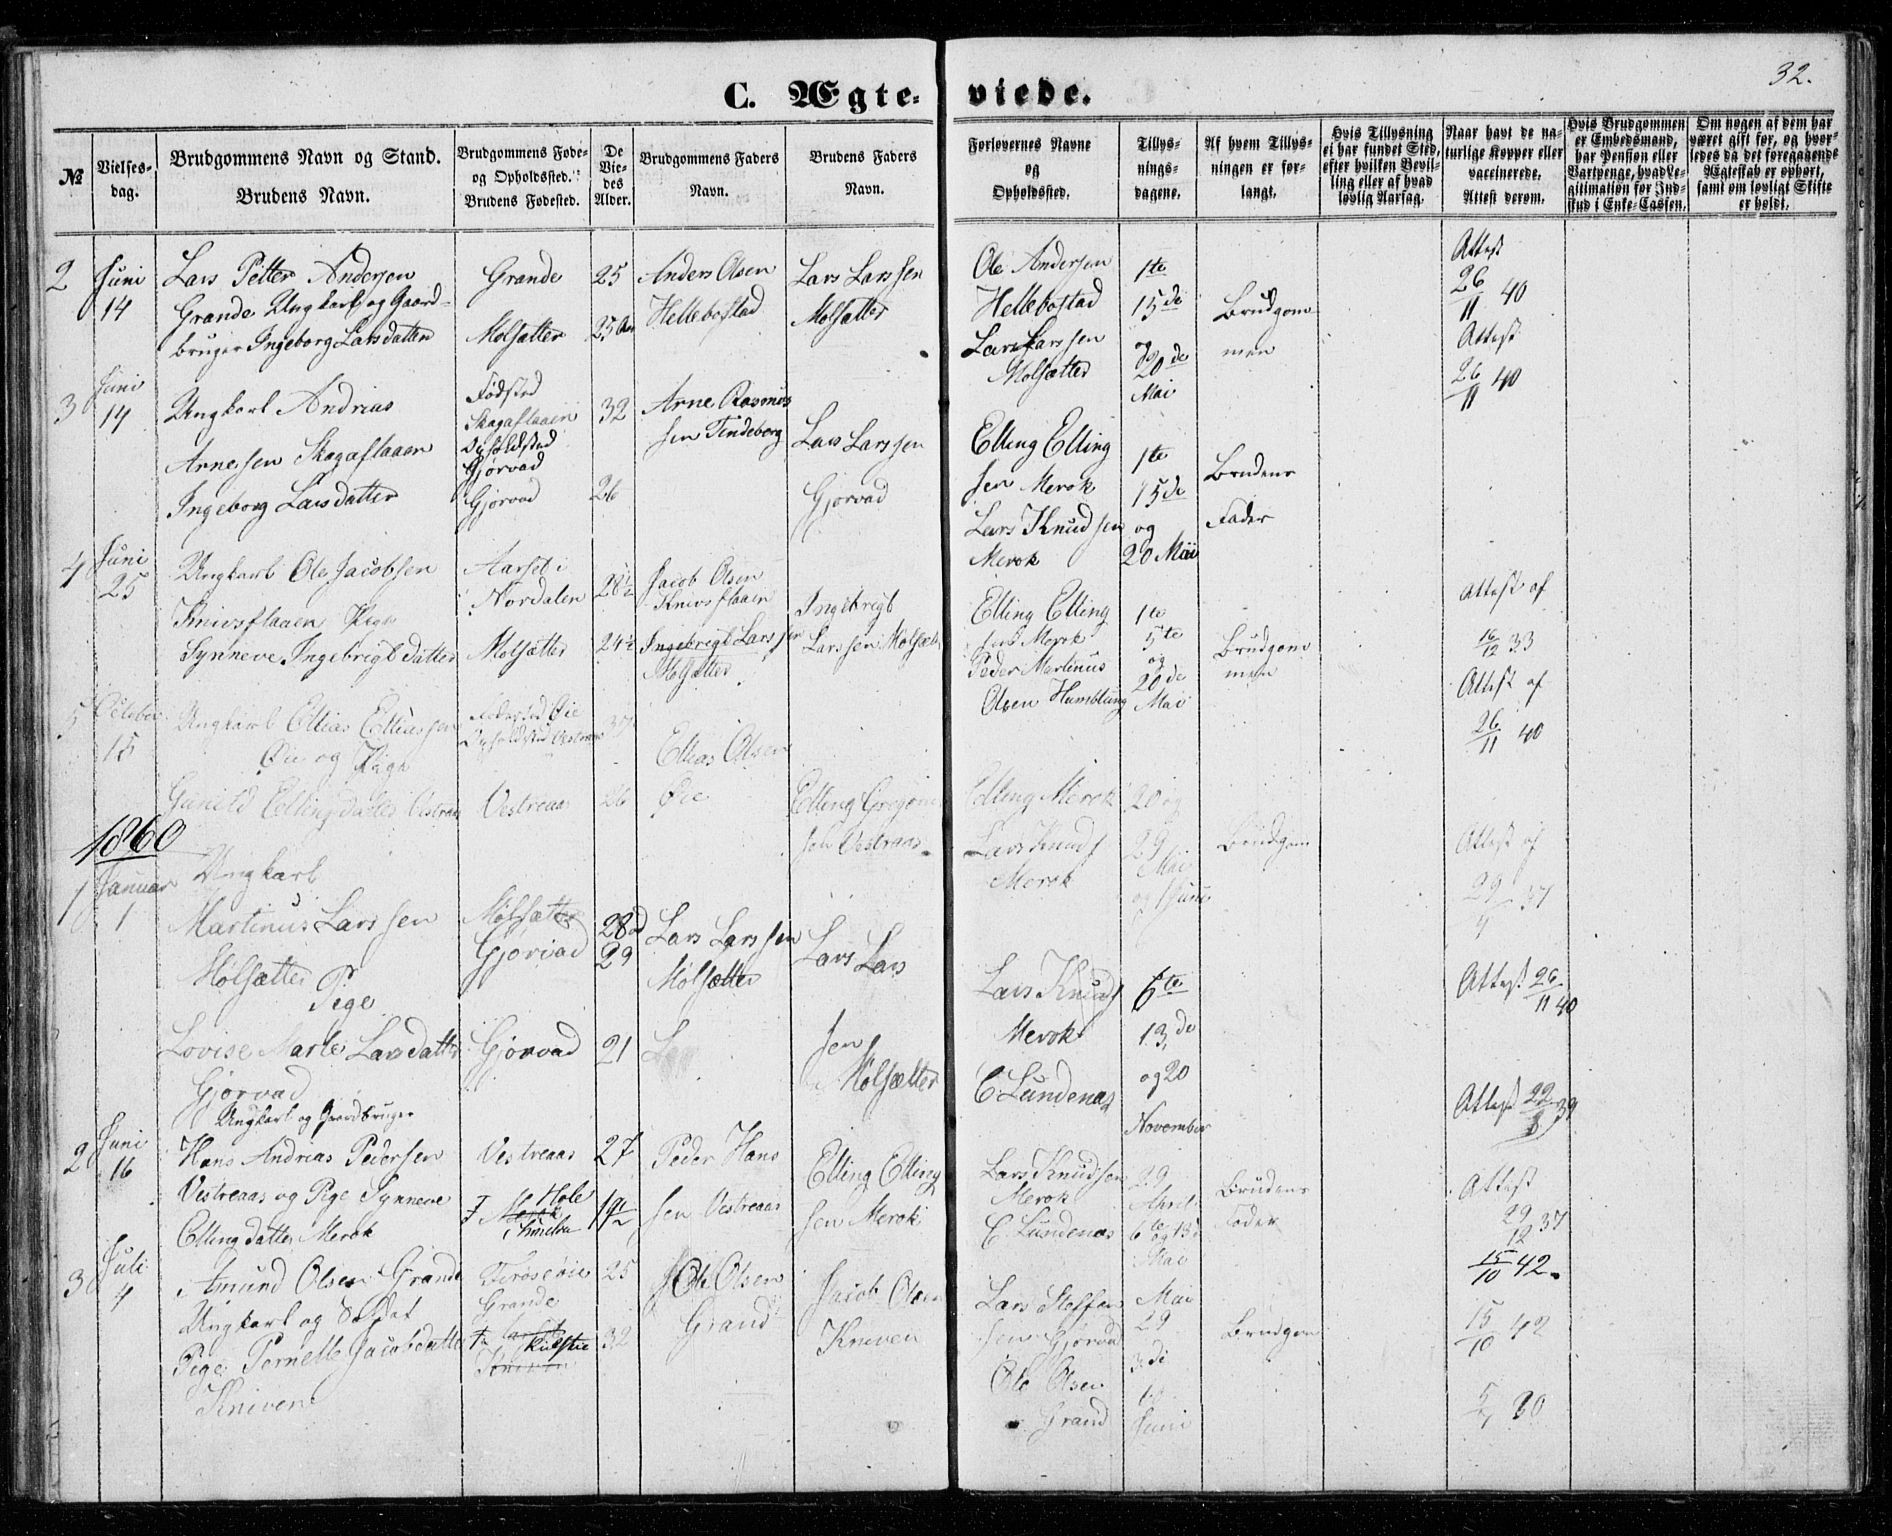 32.
C. Ægte-viede.
№
Vielses-
dag.
Brudgommens Navn og Stand.
Brudens Navn.
Brudgommens Føde-
og Opholdssted.
Brudens Fødested.
De
Vie-
des
Alder.
Brudgommens Faders
Navn.
Brudens Faders
Navn.
Forlovernes Navne
og
Opholdssted.
Tillys-
nings-
dagene.
Af hvem Tillys-
ningen er for-
langt.
Hvis Tillysning
ei har fundet Sted,
efter hvilken Bevil-
ling eller af hvad
lovlig Aarsag.
Naar havt de na-
turlige Kopper eller
vaccinerede.
Attest derom.
Hvis Brudgommen
er Embedsmand,
har Pension eller
Vartpenge, hvad Le-
gitimation for Ind-
skud i Enke-Cassen.
Om nogen af dem har
været gift før, og hvor-
ledes da det foregaaende
Ægteskab er ophørt,
samt om lovligt Skifte
er holdt.
2
Juni
14
Lars Petter Andersen
Grande Ungkarl og Gaard-
bruger Ingeborg Larsdatter
Grande
Molsætter
25
25 Aar
Anders Olsen
Hellebostad
Lars Larssen
Molsætter
Ole Andersen
Hellebostad
Lars Larssen
Molsætter
1te
15de
og
20de
Mai
Brudgom-
men
Attest
26/11 40
Attest
26/11 40
3
Juni
14
Ungkarl Andrias
Arnesen Skagaflaaen
Ingeborg Larsdatter
Fødsted
Skagaflaaen
Opholdsted
Gjørvad
Gjørvad
32
26
Arne Rasmus
sen Tindeborg
Lars Larssen
Gjørvad
Elling Elling
sen Merok
Lars Knudsen
Merok
1te
15de
og
20 Mai
Brudens
Fader
4
Juni
25
Ungkarl Ole Jacobsen
Knivsflaaen Pige
Synneve Ingebrigtdatter
Aarset i
Nordalen
Molsætter
28½
24½
Jacob Olsen
Knivsflaaen
Ingebrigt Larssen
Molsætter
Ingebrigt
Larssen Molsæt
Elling Elling
sen Merok
Peder Martinus
Olsen Humblung
1te
5te
og
20de
Mai
Brudgom
men
Attest af
16/12 33
Attest af
26/11 40
5
October
15
Ungkarl Ellias Elliassen
Øie og Pige
Gunild Ellingsdatter Vestraas
Fødested Øie
Opholdsted Vestraas
Vestreaas
37
26
Ellias Olsen
Øie
Elling Gregorius
sen Vestraas
Elling Merok
Lars Knuds
Merok
20 og
29
Mai
og 1 Juni
Brudgom
Attest af
29/9 37
1860
1
Januar
1
Ungkarl
Martinus Larssen
Molsætter
Pige
Lovise Marte Larsdatter
Gjørvad
Molsætter
Gjørvad
Gjørvad
28
29
21
Lars Larssen
Molsætter
Lars Lars
sen
Molsætter
Lars Knuds
Merok
E Lundenas
6te
13de
og 20
November
Attest 26/11 40
Attest 22/8 39
2
Juni
16
Ungkarl og Gaardbruger
Hans Andrias Pedersen
Vestreaas og Pige Synneve
Ellingdatter Merok
Vestreaas
Merok
Hole
27
19½
Peder Hans
sen Vestreaas
Elling Elling
sen Merok
Lars Knudsen
Merok
E Lundenas
29
April
6te og 13
Mai
Brudens
Fader
Attest
29/12 37
15/10 42.
3
Juli
4
Amund Olsen Grande
Ungkarl og Soldat
Pige Pernelle Jacobsdatter
Kniven
Grande
Kniven
25
32
Ole Olsen
Grand
Jacob Olsen
Kniven
Lars Steffen
sen Gjørvad
Ole Olsen
Grand
Mai
29
3de
Juni
Brudgom
15/10 42